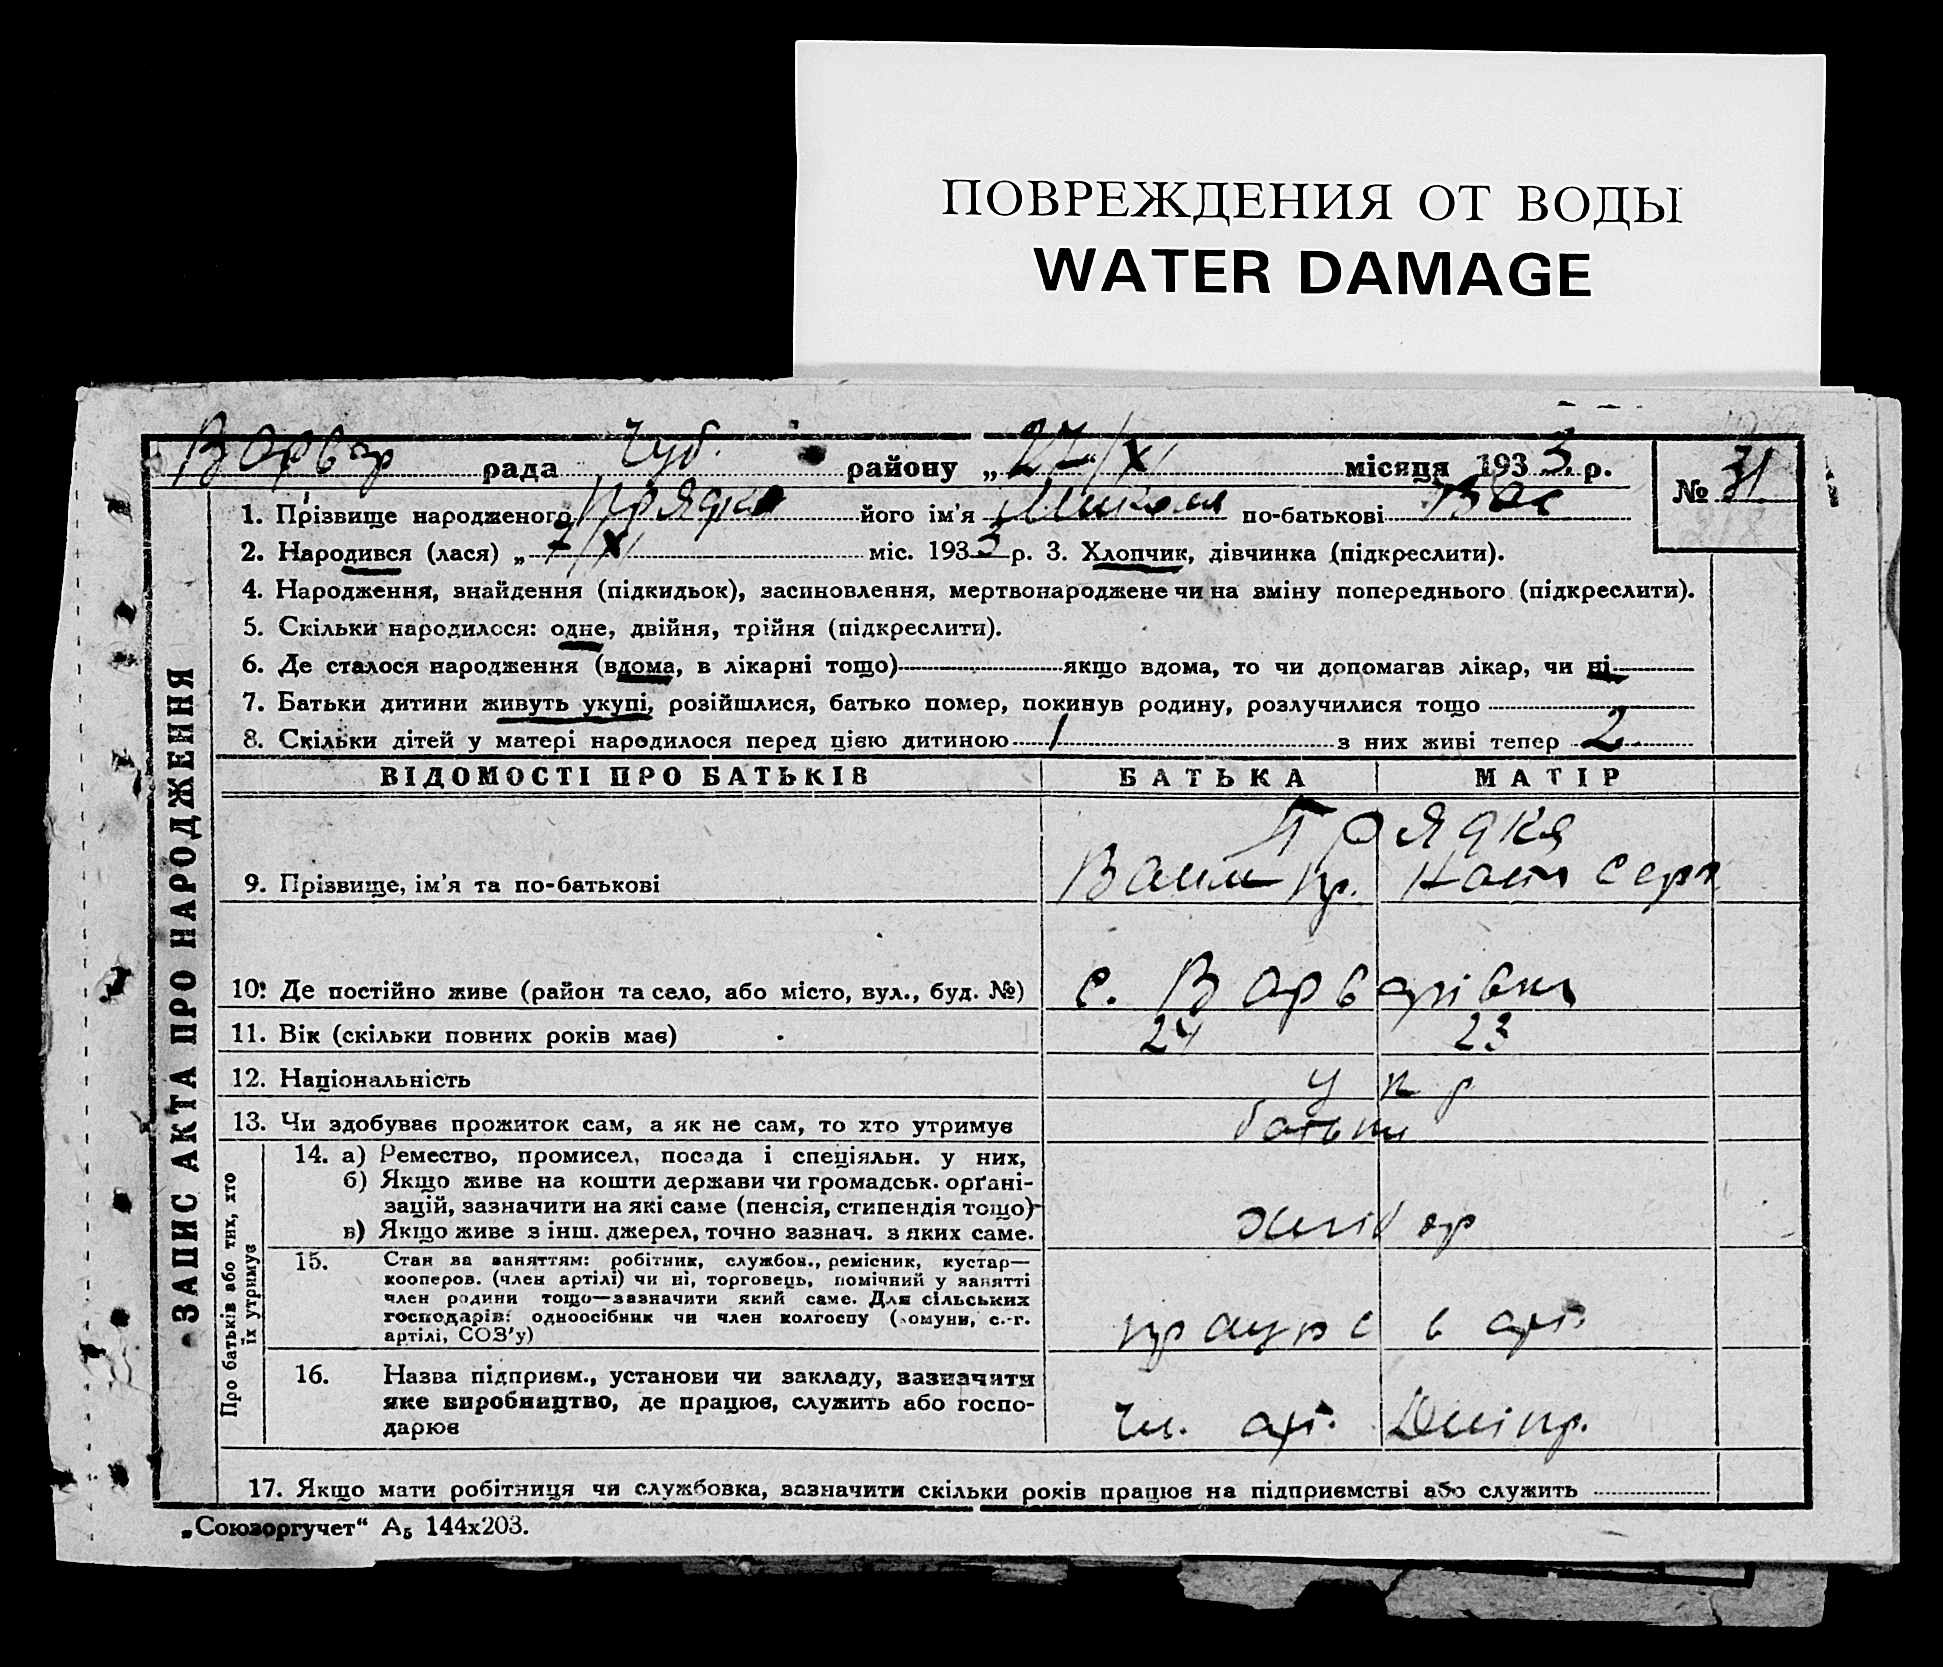 ПОВРЕЖДЕНИЯ ОТ ВОДЫ
WATER DAMAGE
Варвар рада Чуб. району „27/XI місяця 1933 р.
№ 31
1. Прізвище народженого Прядка його ім'я Микола по-батькові Вас
2. Народився (лася) „7/XI міс. 1933 р. 3. Хлопчик, дівчинка (підкреслити).
4. Народження, знайдення (підкидьок), засиновлення, мертвонароджене чи на зміну попереднього (підкреслити).
5. Скільки народилося: одне, двійня, трійня (підкреслити).
6. Де сталося народження (вдома, в лікарні тощо) якщо вдома, то чи допомагав лікар, чи ні
7. Батьки дитини живуть укупі, розійшлися, батько помер, покинув родину, розлучилися тощо
8. Скільки дітей у матері народилося перед цією дитиною 1 з них живі тепер 2
ЗАПИС АКТА ПРО НАРОДЖЕННЯ
ВІДОМОСТІ ПРО БАТЬКІВ БАТЬКА МАТІР
Прядка
9. Прізвище, ім'я та по-батькові
10. Де постійно живе (район та село, або місто, вул., буд. №) с. Варварівка
11. Вік (скільки повних років має) 24 23
12. Національність укр
13. Чи здобуває прожиток сам, а як не сам, то хто утримує батьки
Про батьків або тих, хто їх утримує
14. а) Ремество, промисел, посада і спеціяльн. у них,
б) Якщо живе на кошти держави чи громадськ. орґані-
зацій, зазначити на які саме (пенсія, стипендія тощо)
в) Якщо живе з інш. джерел, точно зазнач. з яких саме. хлібор
15. Стан за заняттям: робітник, службов., ремісник, кустар—
кооперов. (член артілі) чи ні, торговець, помічний у занятті
член родини тощо—зазначити який саме. Для сільських
господарів: одноосібник чи член колгоспу (комуни, с.-г.
артілі, СОЗ'у) працює в арт.
16. Назва підприєм., установи чи закладу, зазначити
яке виробництво, де працює, служить або госпо-
дарює Чл. арт. Дніпр.
17. Якщо мати робітниця чи службовка, зазначити скільки років працює на підприємстві або служить
„Союзоргучет“ А5 144х203.